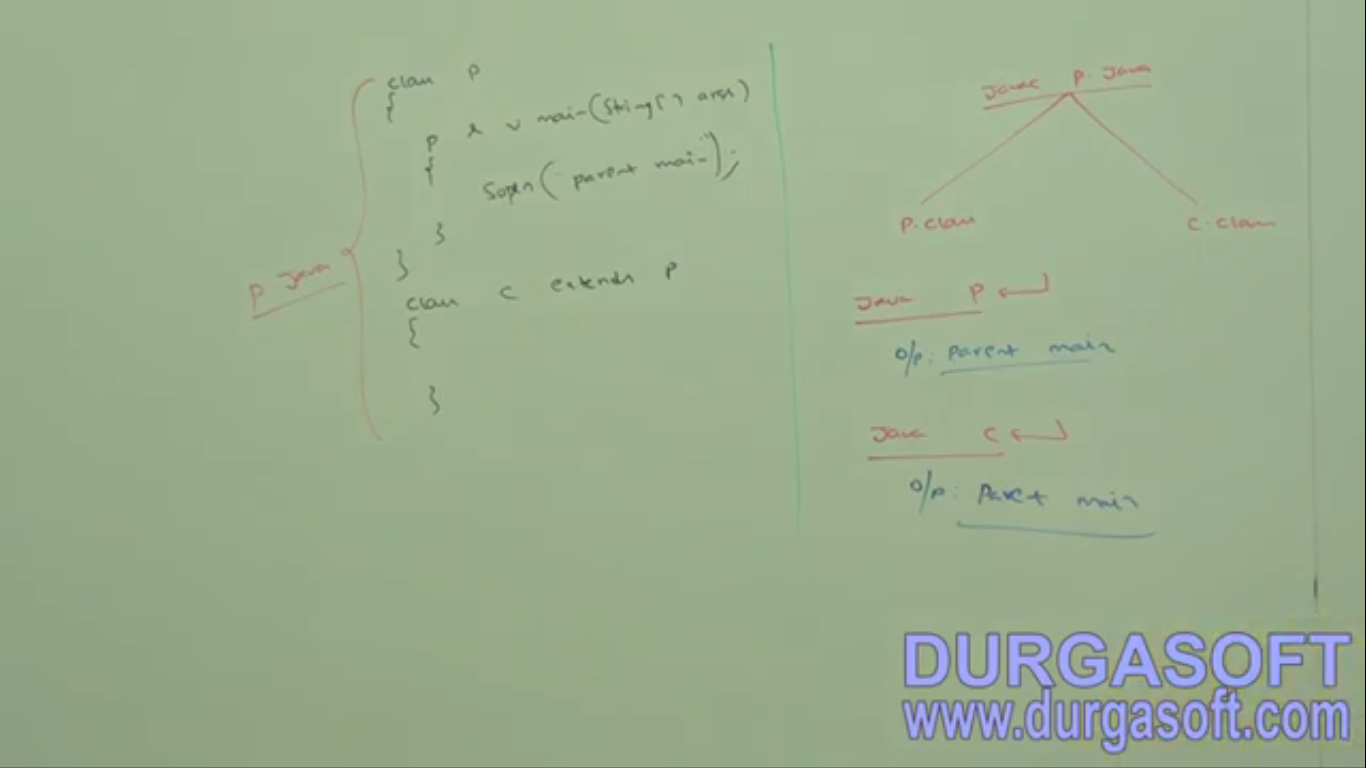 class P
{
P s v main(String[] args)
{
Sopln("parent main");
}
}
class C extends P
{
}
P.Java
Javac P.Java
P.class
C.class
Java P
O/P: Parent main
Java C
O/P: Paret main
DURGASOFT
www.durgasoft.com